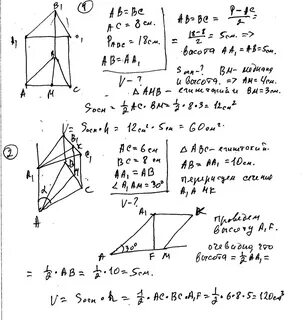 ①
B₁
A₁
C₁
B
A
M
C
AB = BC
AC = 8 см.
P_ABC = 18 см.
AB = AA₁
V - ?
AB = BC = (P - AC)/2 =
= (18-8)/2 = 5 см. =>
высота AA₁ = AB = 5 см.
BM - медиана
и высота. => AM = 4 см.
Δ AMB - египетский и BM = 3 см.
Sосн = 1/2 AC · BM = 1/2 · 8 · 3 = 12 см²
V = Sосн · h = 12 см² · 5 см = 60 см³.
②
AC = 6 см
BC = 8 см
AA₁ = AB
∠A₁AM = 30°
V - ?
Δ ABC - египетский.
AB = AA₁ = 10 см.
сечение
A₁ A M K
A₁
K
A
30°
F
M
проведём
высоту A₁F.
очевидно что
высота = 1/2 AA₁ =
= 1/2 · AB = 1/2 · 10 = 5 см.
V = Sосн · h = 1/2 · AC · BC · A₁F = 1/2 · 6 · 8 · 5 = 120 см³